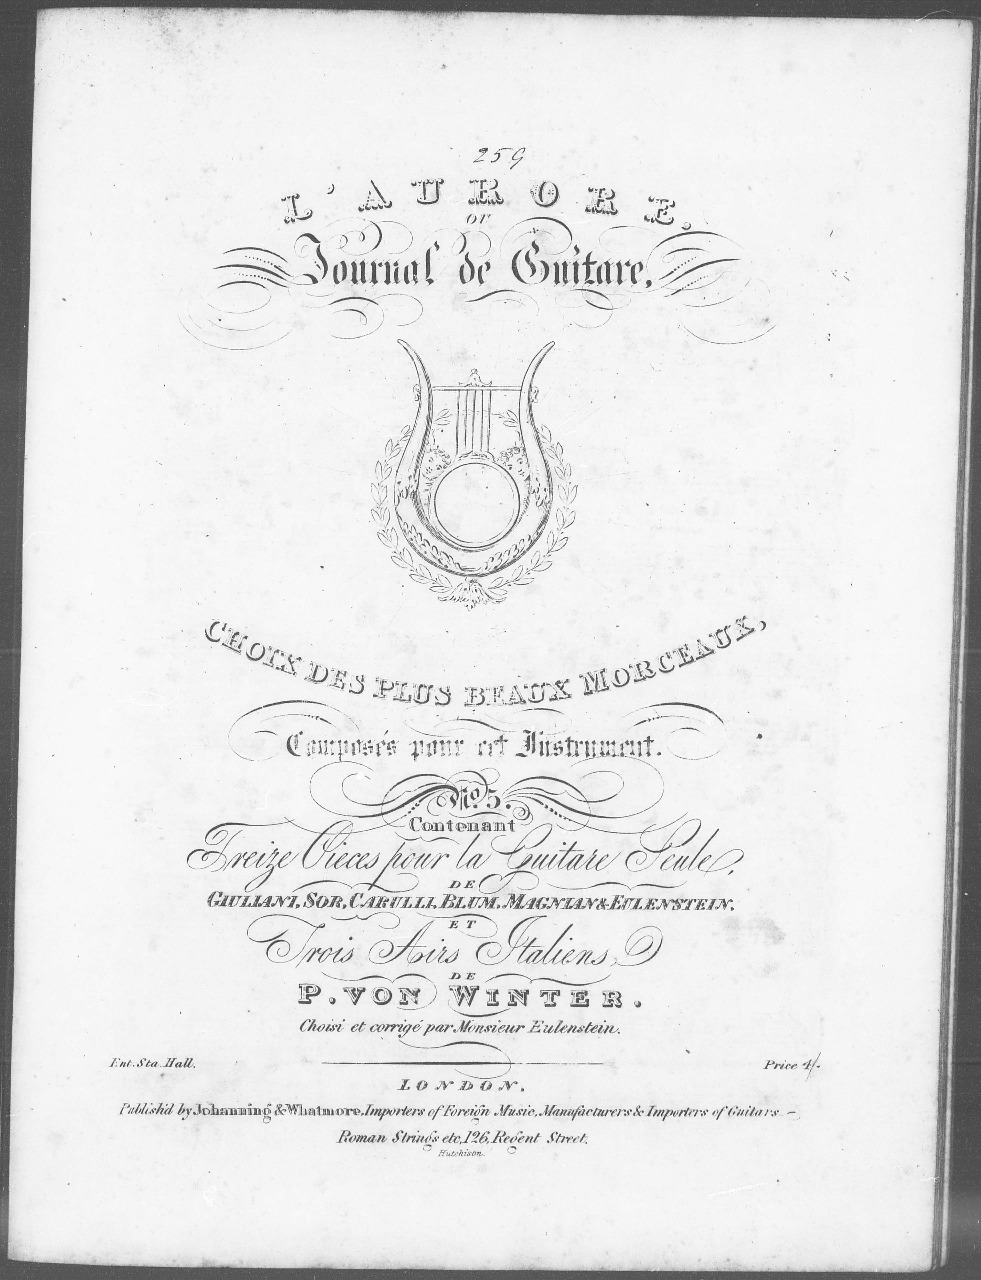 259
L'AURORE,
OU
Journal de Guitare,
CHOIX DES PLUS BEAUX MORCEAUX,
Composés pour cet Instrument.
No. 5.
Contenant
Treize Pieces pour la Guitare Seule,
DE
GIULIANI, SOR, CARULLI, BLUM, MAGNIAN & EULENSTEIN,
ET
Trois Airs Italiens,
DE
P. VON WINTER.
Choisi et corrigé par Monsieur Eulenstein.
Ent. Sta. Hall. Price 4/-
LONDON,
Publish'd by Johanning & Whatmore, Importers of Foreign Music, Manufacturers & Importers of Guitars —
Roman Strings etc, 126, Regent Street.
Hutchison.